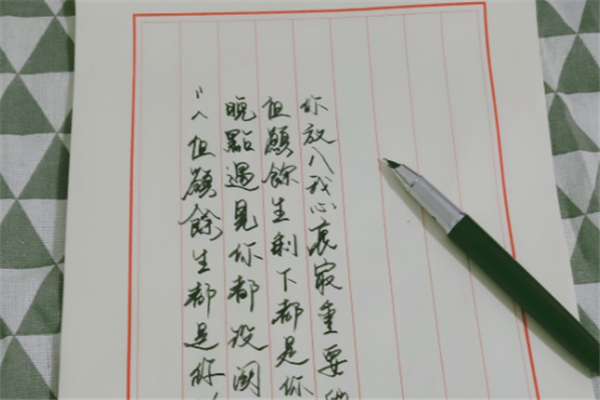 你放入我心底最重要
但願餘生剩下都是你
晚點遇見你都没關
但願餘生都是你